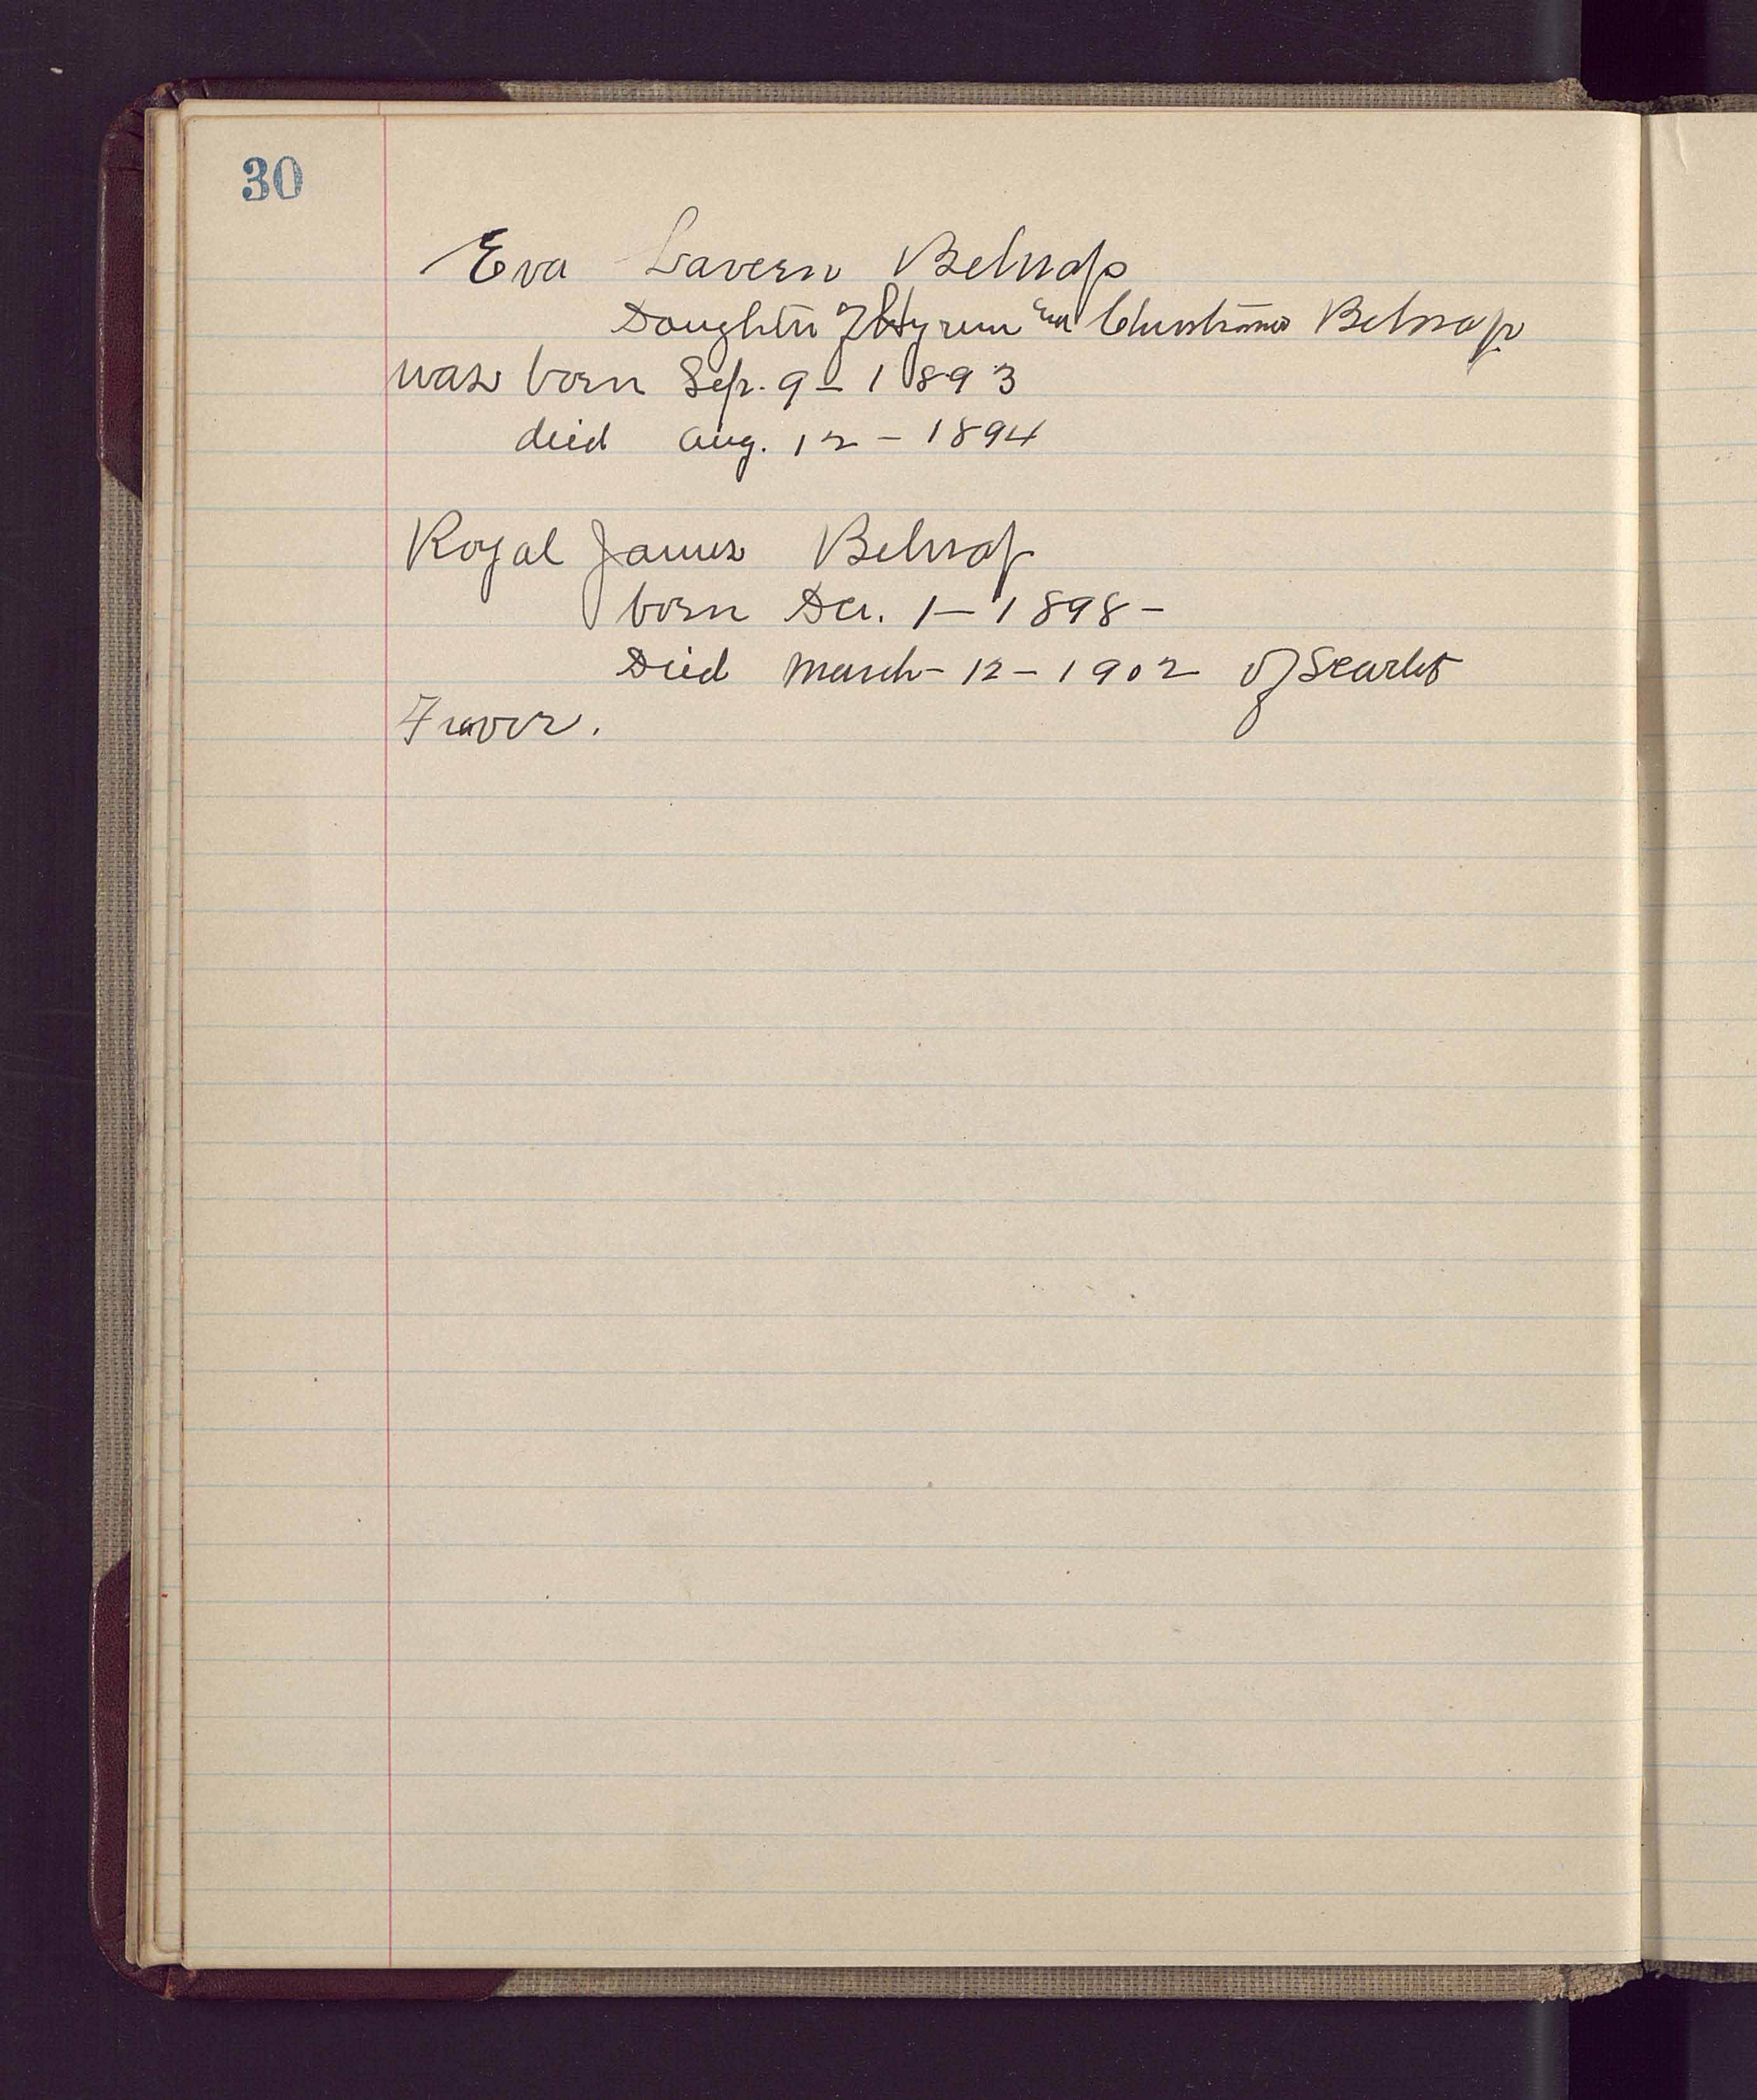 30
Eva Lavern Belnap
Daughter of Hyrum and Christiana Belnap
was born Sep. 9 - 1893
died Aug. 12 - 1894
Royal James Belnap
born Dec. 1 - 1898 -
Died March - 12 - 1902 of Scarlet
Fever.